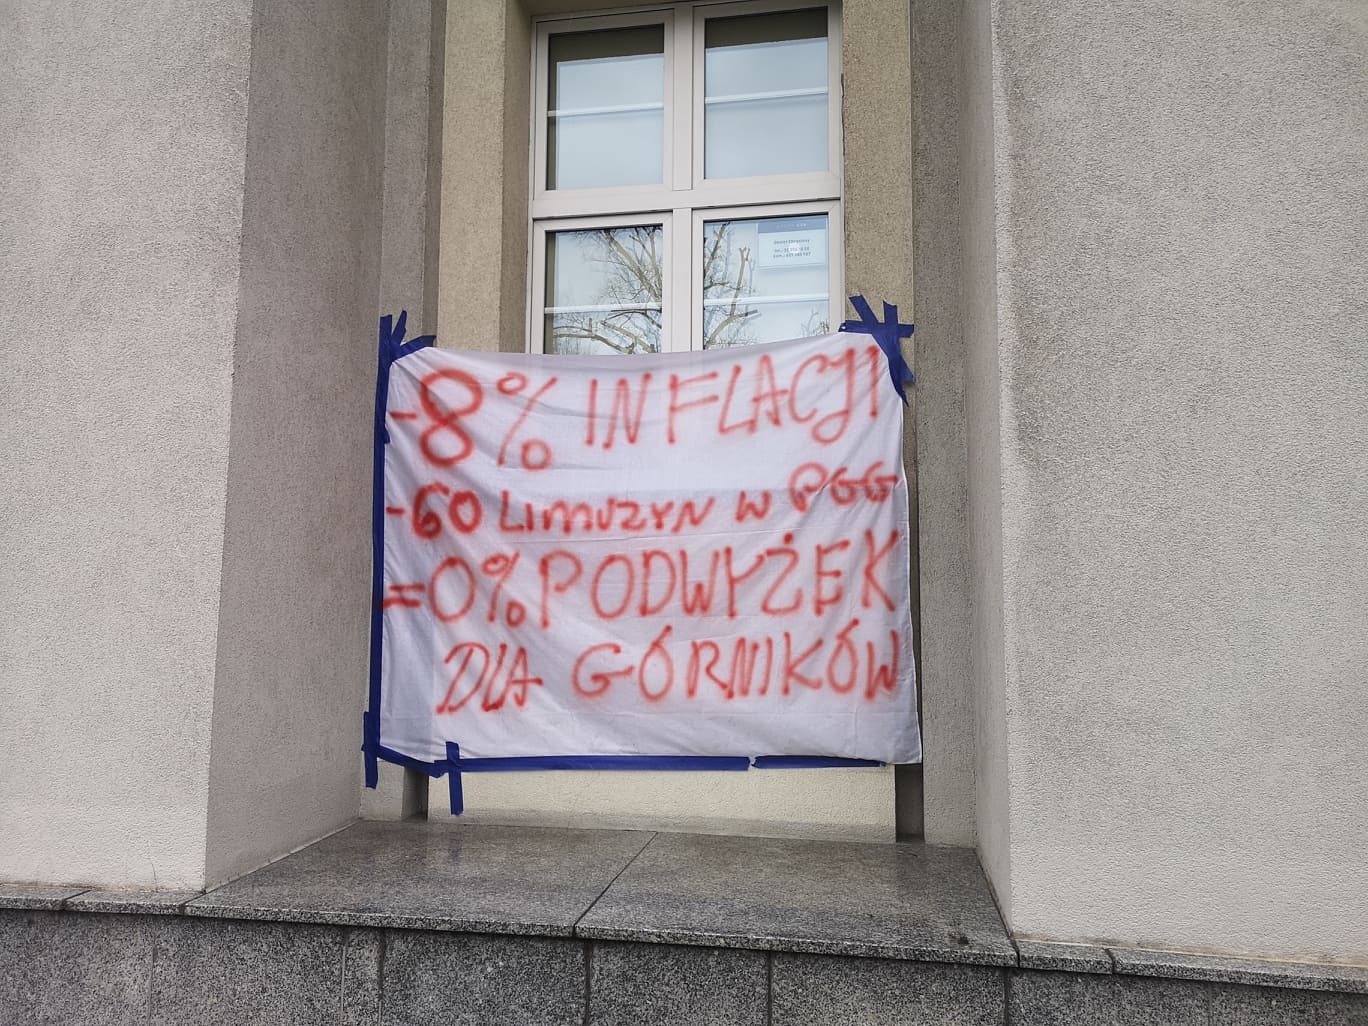 -8% INFLACJI
-60 LIMUZYN W PGG
=0% PODWYŻEK
DLA GÓRNIKÓW